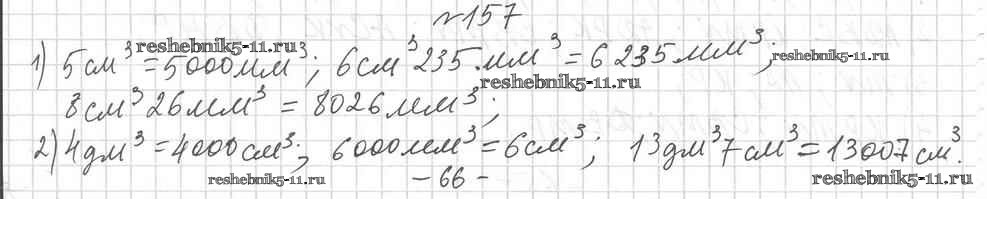 №157
1) 5см³ = 5000мм³; 6см³ 235мм³ = 6235мм³;
8см³ 26мм³ = 8026мм³;
2) 4дм³ = 4000см³; 6000мм³ = 6см³; 13дм³ 7см³ = 13007см³.
- 66 -
reshebnik5-11.ru
reshebnik5-11.ru
reshebnik5-11.ru
reshebnik5-11.ru
reshebnik5-11.ru